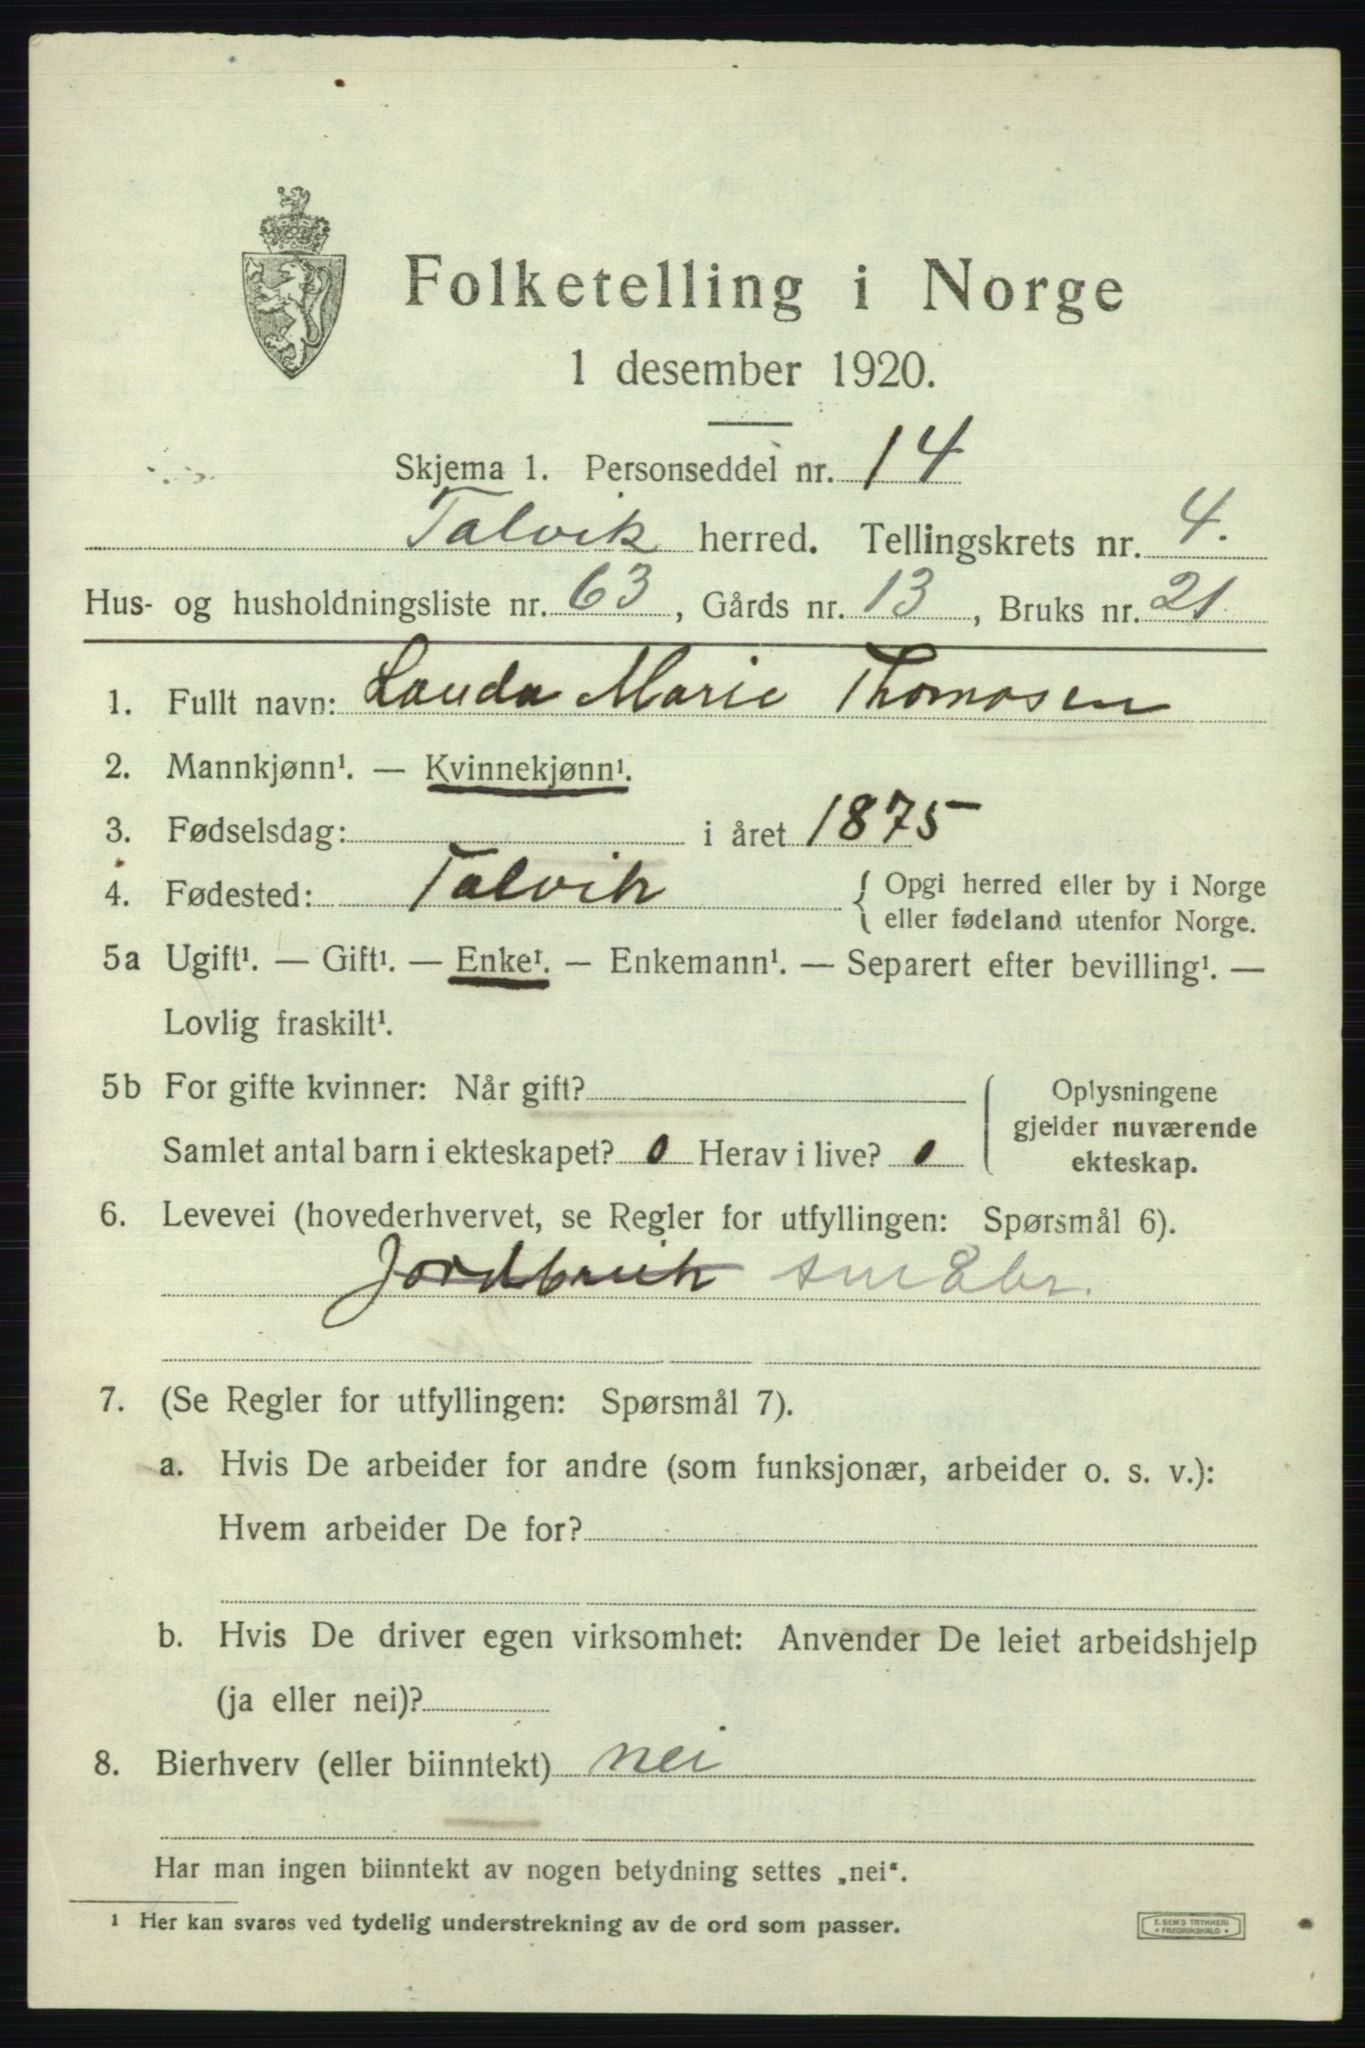 Folketelling i Norge
1 desember 1920.
Skjema 1. Personseddel nr. 14
Talvik herred. Tellingskrets nr. 4.
Hus- og husholdningsliste nr. 63, Gårds nr. 13, Bruks nr. 21
1. Fullt navn: Lauda Marie Thomasen
2. Mannkjønn¹. — Kvinnekjønn¹.
3. Fødselsdag: i året 1875
4. Fødested: Talvik { Opgi herred eller by i Norge
eller fødeland utenfor Norge.
5a Ugift¹. — Gift¹. — Enke¹. — Enkemann¹. — Separert efter bevilling¹. —
Lovlig fraskilt¹.
5b For gifte kvinner: Når gift?
Samlet antal barn i ekteskapet? 0 Herav i live? 0
Oplysningene
gjelder nuværende
ekteskap.
6. Levevei (hovederhvervet, se Regler for utfyllingen: Spørsmål 6).
Jordbruk småbr.
7. (Se Regler for utfyllingen: Spørsmål 7).
a. Hvis De arbeider for andre (som funksjonær, arbeider o. s. v.):
Hvem arbeider De for?
b. Hvis De driver egen virksomhet: Anvender De leiet arbeidshjelp
(ja eller nei)?
8. Bierhverv (eller biinntekt) nei
Har man ingen biinntekt av nogen betydning settes „nei“.
¹ Her kan svares ved tydelig understrekning av de ord som passer.
E. SEM'S TRYKKERI
FREDRIKSHALD